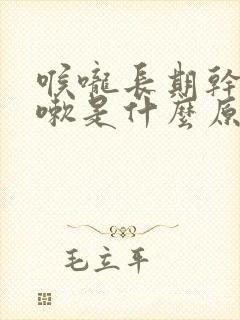 喉嚨長期幹
嗽是什麼原
毛立平